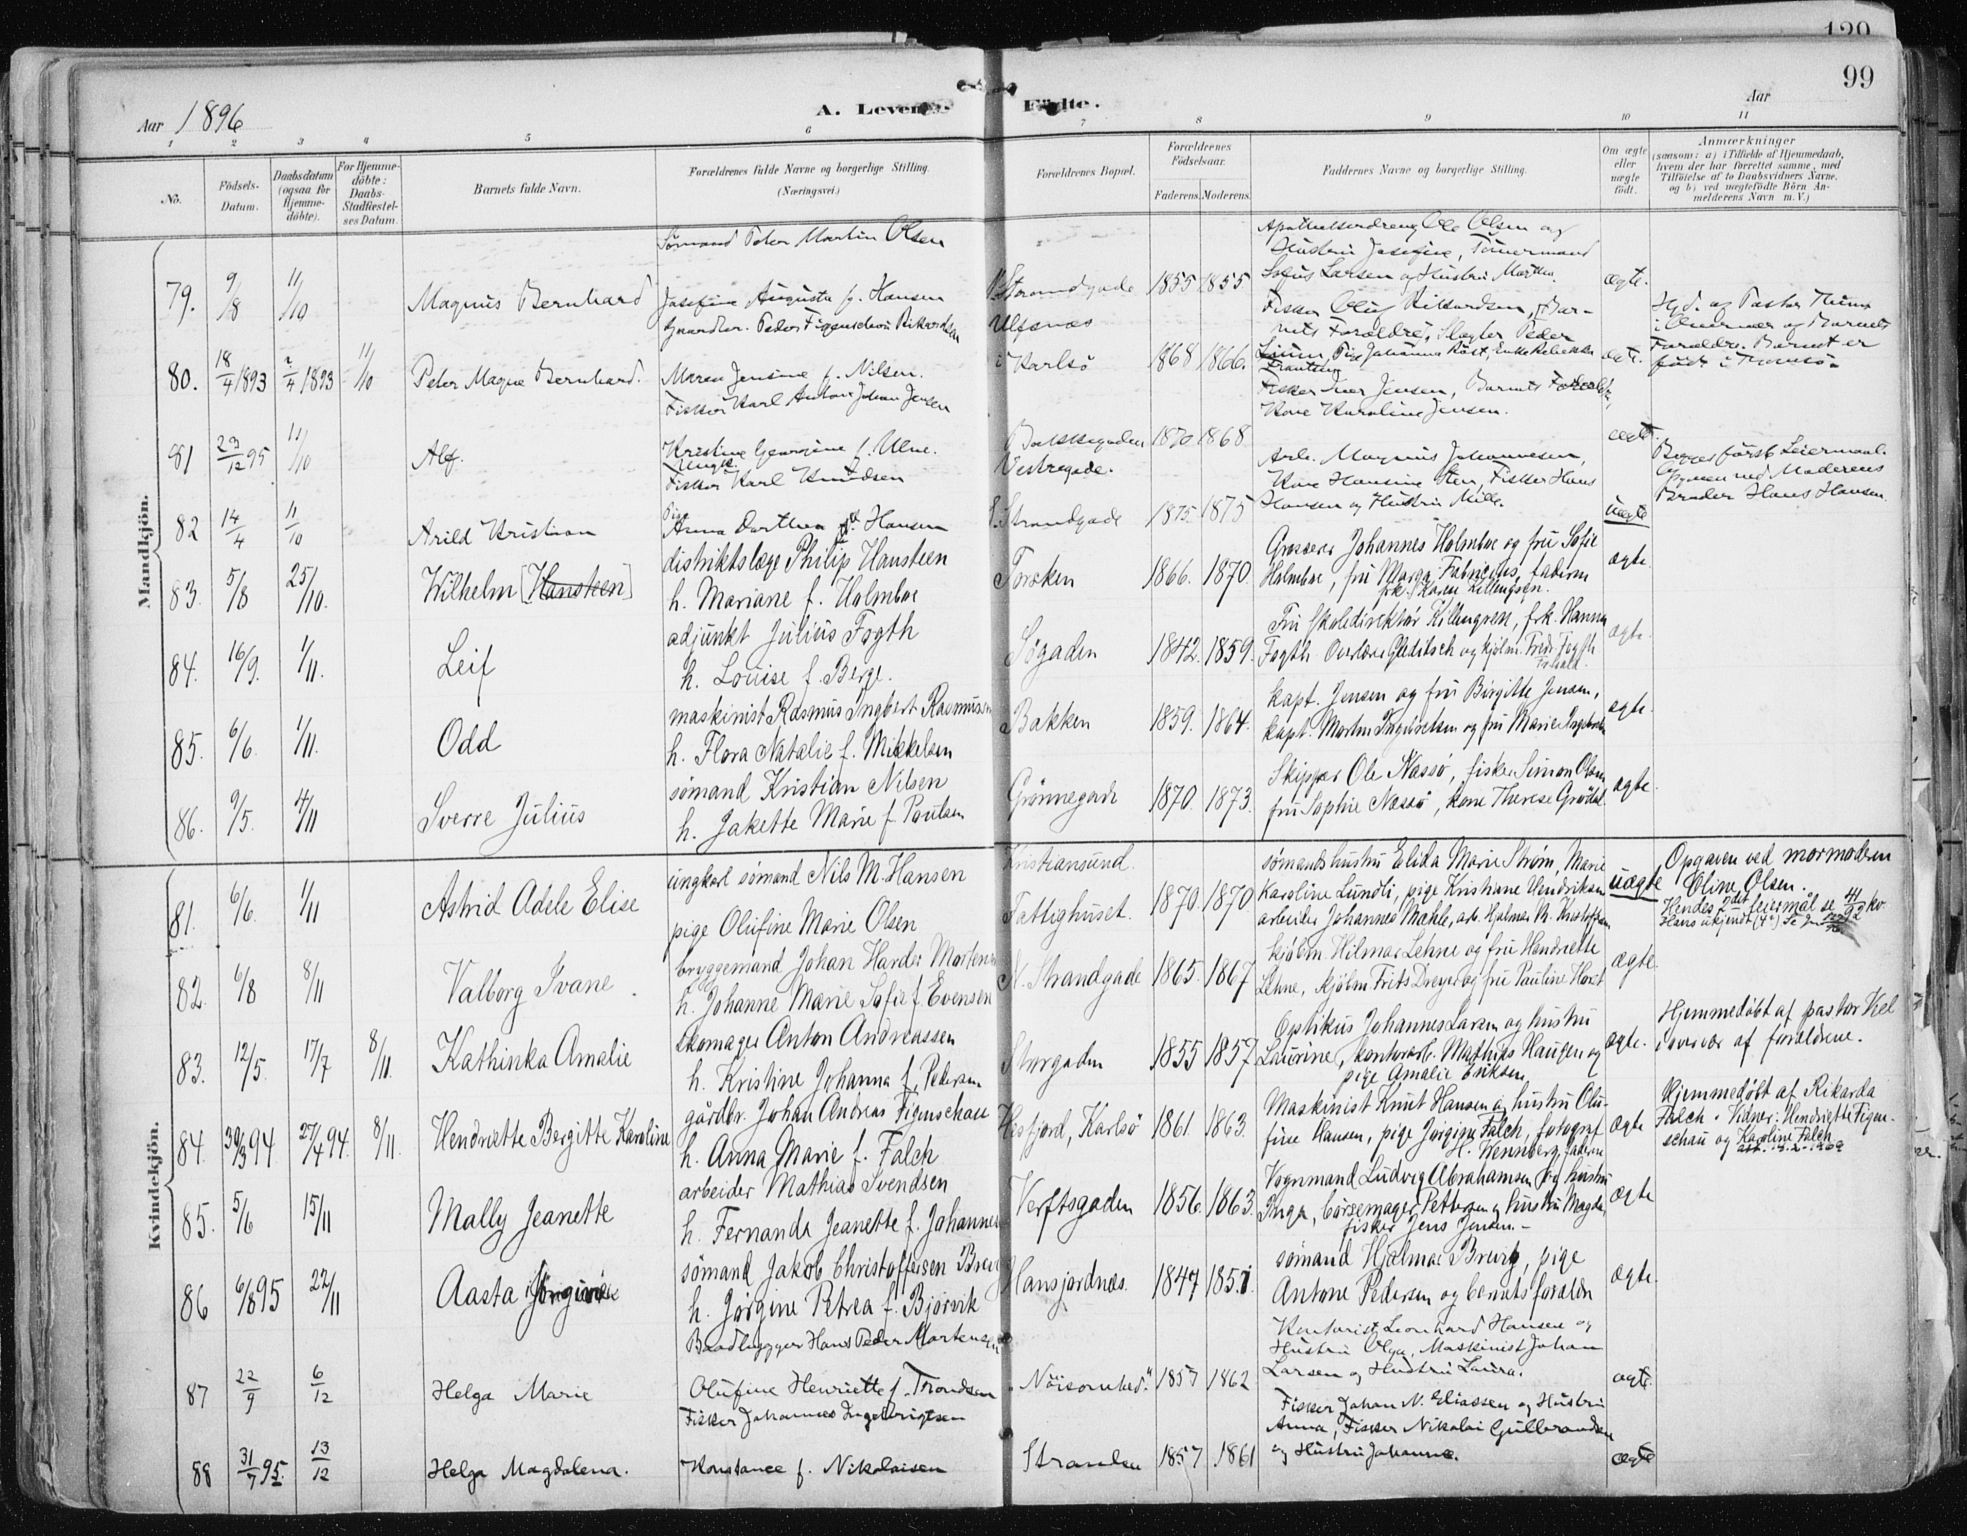 120
99
Aar 1896
A. Levende Fødte.
Aar
1 2 3 4 5 6 7 8 9 10 11
No.
Födsels-Datum.
Daabsdatum (ogsaa for Hjemme-döbte).
For Hjemme-döbte: Daabs-Stadfæstel-ses Datum.
Barnets fulde Navn.
Forældrenes fulde Navne og borgerlige Stilling. (Næringsvei.)
Forældrenes Bopæl.
Forældrenes Födselsaar.
Faderens. Moderens.
Faddernes Navne og borgerlige Stilling.
Om ægte eller uægte födt.
Anmærkninger
(saasom: a) i Tilfælde af Hjemmedaab, hvem der har forrettet samme, med Tilföielse af to Daabsvidners Navne, og b) ved uægtefödte Börn An-melderens Navn m. V.)
Mandkjön.
Sömand Peter Martin Olsen
Apothekerdreng Ole Olsen og
Hustru Josefine, Tömermand
79. 9/8 11/10 Magnus Bernhard Josefine Augusta f. Hansen Strandgade 1855 1855 Sofus Larsen og Hustru Marthe. ægte.
Gaardbr. Peder Figenschou Rikardsen Ulfsnæs
Fisker Oluf Rikardsen, Bar-
nets Forældre, Slagter Peder
80. 18/4 1893 2/4 1893 11/10 Peter Magnus Bernhard. Maren Jensine f. Nilsen. i Karlsö 1868 1866. Pige Johanna Röst, Enke Rebekka ægte.
Forældre. Barnet er
født i Tromsö.
Fisker Karl Anton Johan Jensen
Fisker Iver Jensen, Barnets Forældre,
Kone Karoline Jensen.
81 23/12 95 11/10 Alf. Kristine Georgine f. Ulve. Bakkegaden 1870 1868 ægte.
Ungk.
Fisker Karl Knudsen Vestregade.
Arb. Magnus Johannesen,
Kone Hansine Sten, Fisker Hans
Begges förste Leiermaal.
Opgiven ved Moderens
Broder Hans Hansen.
82 14/4 11/10 Arild Kristian Pige Anna Dorthea Hansen Strandgade 1875 1875 Hansen og Hustru Mille. uægte
distriktslæge Philip Hansteen
Grosserer Johannes Holmboe og fru Sofie
83. 5/8 25/10. Wilhelm [Hansteen] h. Mariane f. Holmboe Torsken 1866. 1870. Holmboe, fru Marga Fabricius, faderen ægte.
frk. Karen Killengreen.
adjunkt Julius Fogth
Fru Skoledirektör Killengreen, frk. Hanna
84. 16/9. 1/11. Leif h. Louise f. Berge. Søgaden 1842. 1859. Fogth. Overlærer Gleditsch og kjøbm. Fredr. Fogth ægte.
maskinist Rasmus Ingbert Rasmussen
kapt. Jensen og fru Birgitte Jensen,
85. 6/6. 1/11. Odd h. Flora Natalie f. Mikkelsen Bakken 1859. 1864. kapt. Morten Ingebretsen og fru Marie Ingebretsen ægte.
sømand Kristian Nilsen
Skipper Ole Næssø, fisker Simon Olsen
86. 9/5. 4/11 Sverre Julius h. Jakette Marie f. Paulsen Grønnegade 1870. 1873. fru Sophie Næssø, kone Therese Grødal. ægte.
Kvindekjön.
ungkarl sømand Nils M. Hansen Kristiansund.
sømandshustru Elida Marie Strøm, Marie
81. 6/6. 1/11 Astrid Adele Elise pige Olufine Marie Olsen Fattighuset. 1870. 1870. Karoline Lundli, pige Kristiane Hendriksen uægte
arbeider Johannes Mæhle, arb. Hjalmar M. Kristoffersen
Opgaven ved mormoderen
Oline Olsen.
Hendes 2det leiermål se 41/92 kv.
bryggemand Johan Harder Mortensen
kjøbm. Hilmar Lehne og fru Hendriette
82. 6/8 8/11 Valborg Ivane h. Johanne Marie Sofie f. Evensen N. Strandgade 1865. 1867 Lehne, kjøbm Frits Dreyer og fru Pauline Horst ægte.
skomager Anton Andreassen
Optikus Johannes Larsen og hustru
83. 12/5. 17/7 8/11. Kathinka Amalie h. Kristine Johanna f. Pedersen Storgaden 1855 1857 Laurine, kontorarb. Mathias Haugen og ægte.
pige Amalie Eriksen
Hjemmedøbt af pastor Kiel
i overvær af forældrene.
gårdbr. Johan Andreas Figenschau
Maskinist Knut Hansen og hustru Olu-
84. 30/3 94 27/4 94. 8/11. Hendriette Bergitte Karoline h. Anna Marie f. Falch Hesfjord, Karlsø 1861 1863. fine Hansen, pige Jørgine Falch, fotograf ægte
H. Wennberg, faderen
Hjemmedøbt af Rikarda
Falch. Vidner: Hendriette Figen-
schau og Karoline Falch
arbeider Mathias Svendsen
Vognmand Ludvig Abrahamsen og hustru
85. 5/6 15/11 Mally Jeanette h. Fernanda Jeanette f. Johannes Verftsgaden 1856. 1863. Inga, børsemager Pettersen og hustru Magda, ægte
fisker Jens Jensen.
sømand Jakob Christoffersen Brevig
sømand Hjalmar Brevig, pige
86 6/8 95 22/11 Aasta Jørgine h. Jørgine Petrea f. Bjørvik Hansjordnæs. 1847 1851. Antone Pedersen og barnets forældre ægte.
Baadbygger Hans Peder Mortensen
Kontorist Leonhard Hansen og
Hustru Olga, Maskinist Johan
87 22/9 6/12 Helga Marie Olufine Henriette f. Trondsen "Nöisomhed." 1857 1862 Larsen og Hustru Laura. ægte.
Fisker Johannes Ingebrigtsen
Fisker Johan N. Eliassen og Hustru
Anna, Fisker Nikolai Gulbrandsen
88 31/7 95. 13/12 Helga Magdalena. Konstance f. Nikolaisen Stranden 1857 1861 og Hustru Johanne. ægte